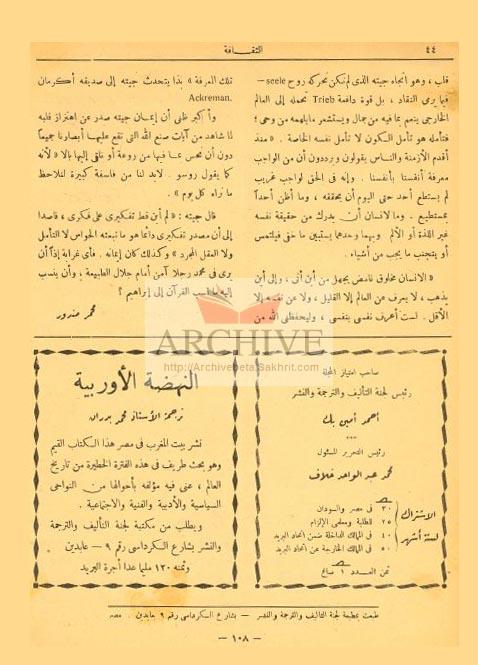 ٤٤
الثقافة
قلب ، وهو اتجاه جيته الذى لم تكن تحركه روح seele —
فيما يرى النقاد ، بل قوة دافعة Trieb تحمله إلى العالم
الخارجى ينعم بما فيه من جمال ويستشعر ما يلهمه من وحى ؛
فتأمله هو تأمل السكون لا تأمل نفسه الخاصة . « منذ
أقدم الأزمنة والناس يقولون ويرددون أن من الواجب
معرفة أنفسنا بأنفسنا . وإنه فى الحق لواجب غريب
لم يستطع أحد حتى اليوم أن يحققه ، وما أظن أحداً
بمستطيع . وما لانسان أن يدرك من حقيقة نفسه
غير اللذة أو الألم وبهما وحدهما يستبين ما خفى فيلتمس
أو يتجنب ما يجب من أشياء .
« الانسان مخلوق غامض يجهل من أين أتى ، وإلى أين
يذهب ، لا يعرف عن العالم إلا القليل ، ولا عن نفسه إلا
الأقل . لست أعرف نفسى بنفسى ، وليحفظنى الله من
تلك المعرفة » بذا يتحدث جيته إلى صديقه أكرمان
Ackreman.
وأكبر ظنى أن إيمان جيته صدر عن اهتزاز قلبه
لما شاهد من آيات صنع الله التى تقع عليها أبصارنا جميعاً
دون أن نحس بما فيها من روعة أو نلقى إليها بالا « لأنه
كما يقول روسو . لابد لنا من فلسفة كبيرة لنلاحظ
ما نراه كل يوم » .
قال جيته : « لم أبن قط تفكيرى على فكرى ، قاصدا
إلى أن مصدر تفكيرى دائما هو ما تبعثه الحواس لا التأمل
ولا العقل المجرد » وكذلك كان إيمانه . فأى غرابة إذاً أن
يرى فى محمد رجلا آمن أمام جلال الطبيعة ، وأن ينسب
إليه ما نسب القرآن إلى إبراهيم ؟
محمد مندور
ARCHIVE
http://Archivebeta.Sakhrit.com
صاحب امتياز المجلة
رئيس لجنة التأليف والترجمة والنشر
أحمد أمين بك
***
رئيس التحرير المسئول
محمد عبد الواحد خلاف
الاشتراك
لستة أشهر
٣٠ فى مصر والسودان
٢٥ للطلبة ومعلمى الإلزام
٤٠ فى الممالك الداخلة ضمن اتحاد البريد
٥٠ فى الممالك الخارجة عن اتحاد البريد
ثمن العدد ١ صاغ
النهضة الأوربية
ترجمة الأستاذ محمد بدران
نشر بيت المغرب فى مصر هذا الكتاب القيم
وهو بحث طريف فى هذه الفترة الخطيرة من تاريخ
العالم ، عنى فيه مؤلفه بأحوالها من النواحى
السياسية والأدبية والفنية والاجتماعية .
ويطلب من مكتبة لجنة التأليف والترجمة
والنشر بشارع الكرداسى رقم ٩ — عابدين
وثمنه ١٢٠ مليما عدا أجرة البريد
طبعت بمطبعة لجنة التأليف والترجمة والنشر — بشارع الكرداسى رقم ٩ عابدين . مصر
— ١٠٨ —